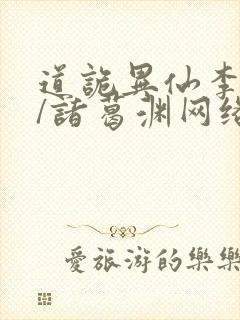 道詭異仙李
/諸葛渊网络
愛旅游的樂樂